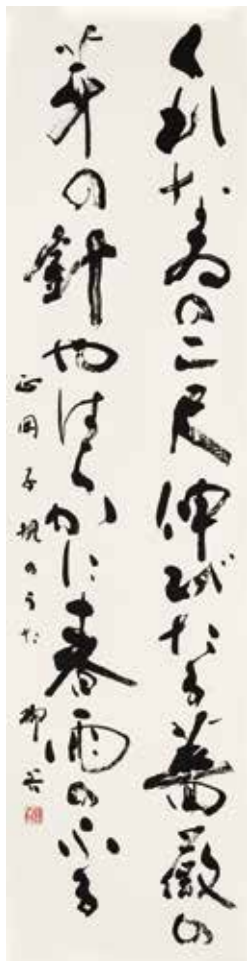 くれなゐの二尺伸びたる薔薇の
芽の針やはらかに春雨のふる
正岡子規のうた 柳苔